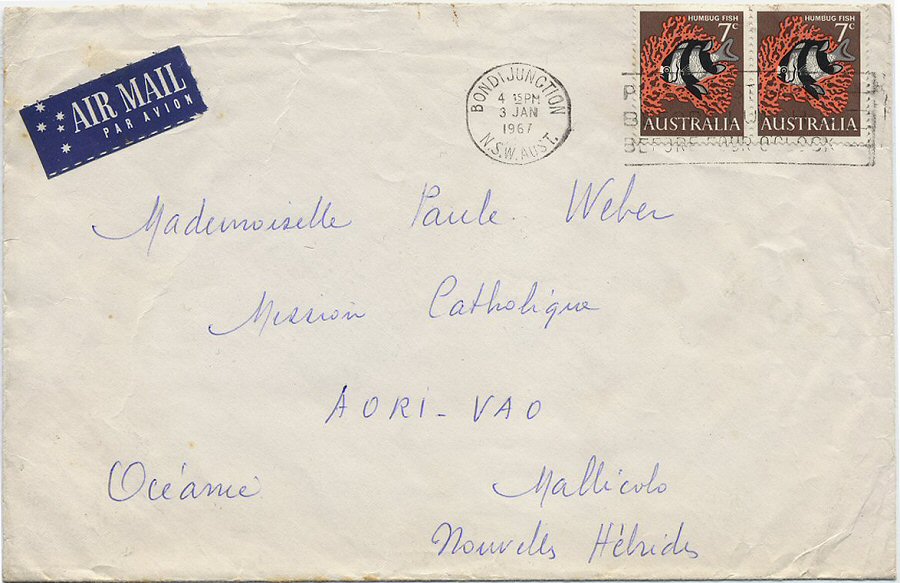 AIR MAIL
PAR AVION
BONDI JUNCTION
4 15PM
3 JAN
1967
N.S.W. AUST.
HUMBUG FISH
7c
AUSTRALIA
HUMBUG FISH
7c
AUSTRALIA
BEFORE OUR O'CLOCK
Mademoiselle Paule. Weber
Mission Catholique
AORI-VAO
Océanie
Mallicolo
Nouvelles Hébrides